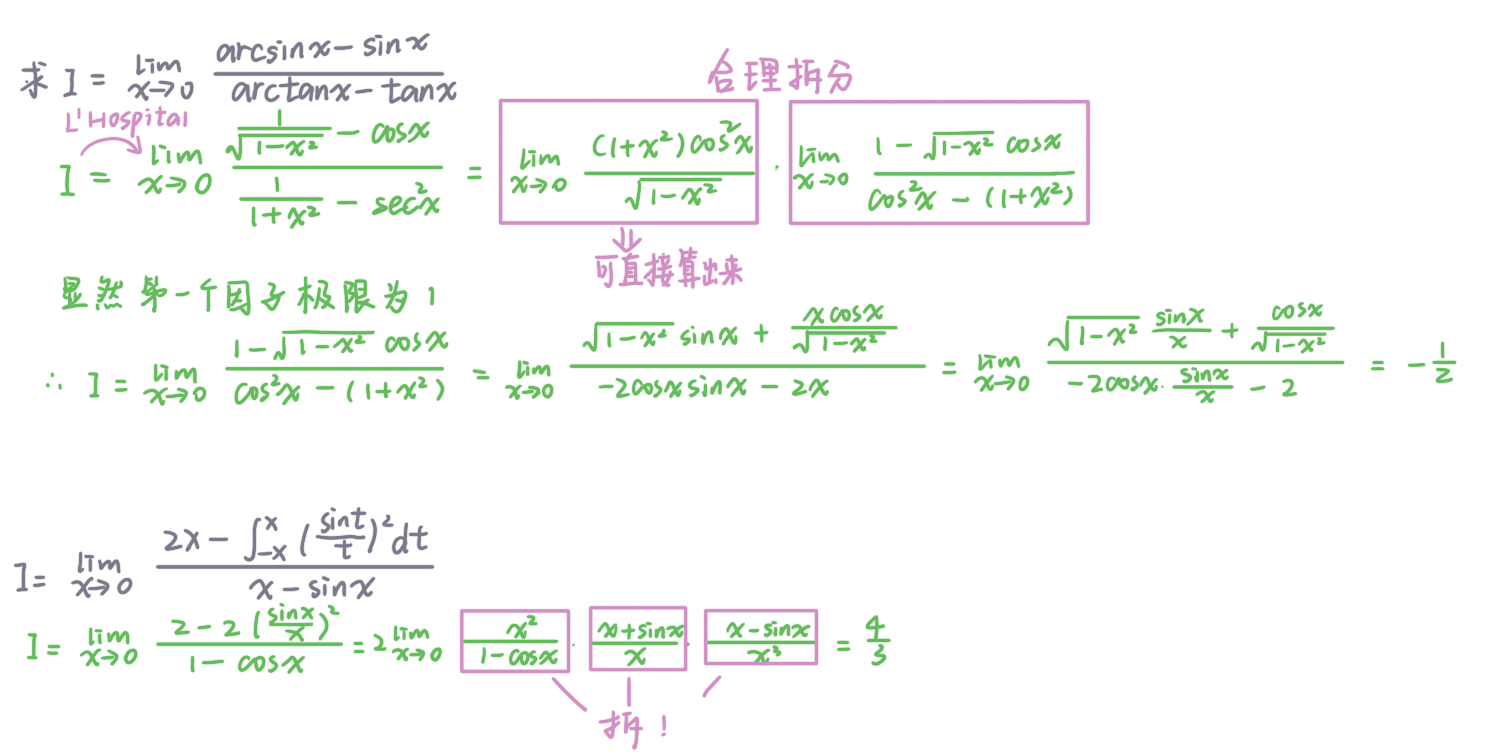 求 I = lim_{x→0} (arcsinx − sinx)/(arctanx − tanx)
合理拆分
L'Hospital
I = lim_{x→0} (1/√(1−x²) − cosx)/(1/(1+x²) − sec²x) = lim_{x→0} ((1+x²)cos²x)/√(1−x²) · lim_{x→0} (1−√(1−x²) cosx)/(cos²x − (1+x²))
可直接算出来
显然第一个因子极限为1
∴ I = lim_{x→0} (1−√(1−x²) cosx)/(cos²x − (1+x²)) = lim_{x→0} (√(1−x²) sinx + xcosx/√(1−x²))/(−2cosxsinx − 2x) = lim_{x→0} (√(1−x²) sinx/x + cosx/√(1−x²))/(−2cosx·sinx/x − 2) = −1/2
I = lim_{x→0} (2x − ∫_{−x}^{x} (sint/t)²dt)/(x − sinx)
I = lim_{x→0} (2 − 2(sinx/x)²)/(1 − cosx) = 2lim_{x→0} x²/(1−cosx) · (x+sinx)/x · (x−sinx)/x³ = 4/3
拆!